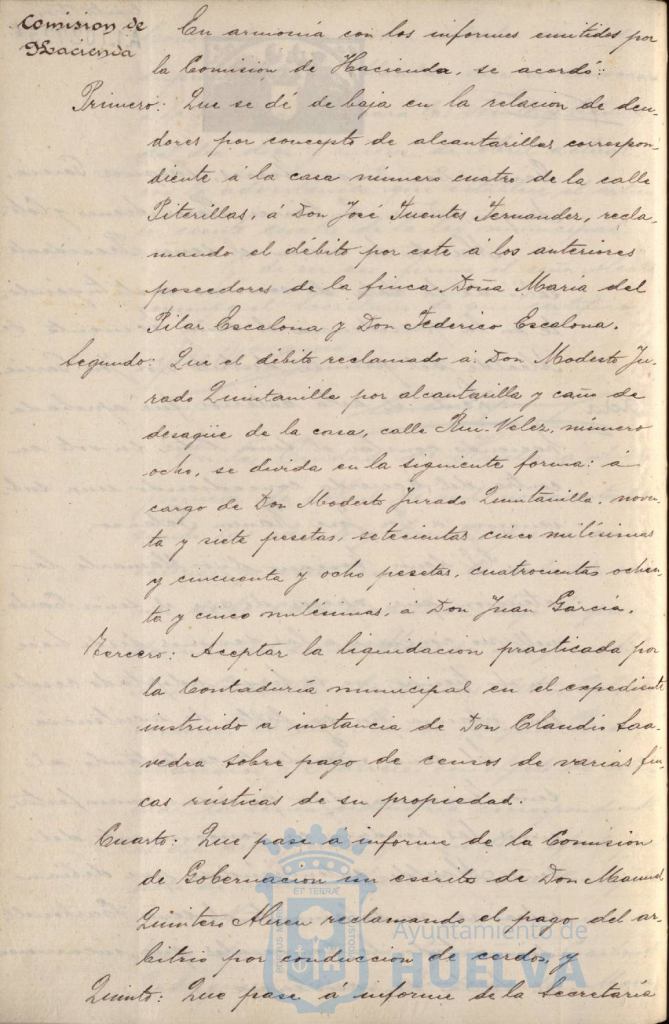 Comision de
Hacienda
En armonía con los informes emitidos por
la Comision de Hacienda, se acordó:
Primero: Que se dé de baja en la relacion de deu-
dores por concepto de alcantarillas correspon-
diente á la casa número cuatro de la calle
Piterillas, á Don José Fuentes Fernandez, recla-
mando el débito por este á los anteriores
poseedores de la finca Doña Maria del
Pilar Escalona y Don Federico Escalona.
Segundo: Que el débito reclamado á Don Modesto Ju-
rado Quintanilla por alcantarilla y caño de
desagüe de la casa, calle Rui-Velez, número
ocho, se divida en la siguiente forma: á
cargo de Don Modesto Jurado Quintanilla, noven-
ta y siete pesetas, setecientas cinco milésimas
y cincuenta y ocho pesetas, cuatrocientas ochen-
ta y cinco milésimas, á Don Juan García.
Tercero: Aceptar la liquidacion practicada por
la Contaduría municipal en el expediente
instruido á instancia de Don Claudio Saa-
vedra sobre pago de censos de varias fin-
cas rústicas de su propiedad.
Cuarto: Que pase á informe de la Comision
de Gobernacion un escrito de Don Manuel
Quintero reclamando el pago del ar-
bitrio por conduccion de cerdos, y
Quinto: Que pase á informe de la Secretaría
ET TERRÆ
PORTUS
CUSTODIA
Ayuntamiento de
HUELVA